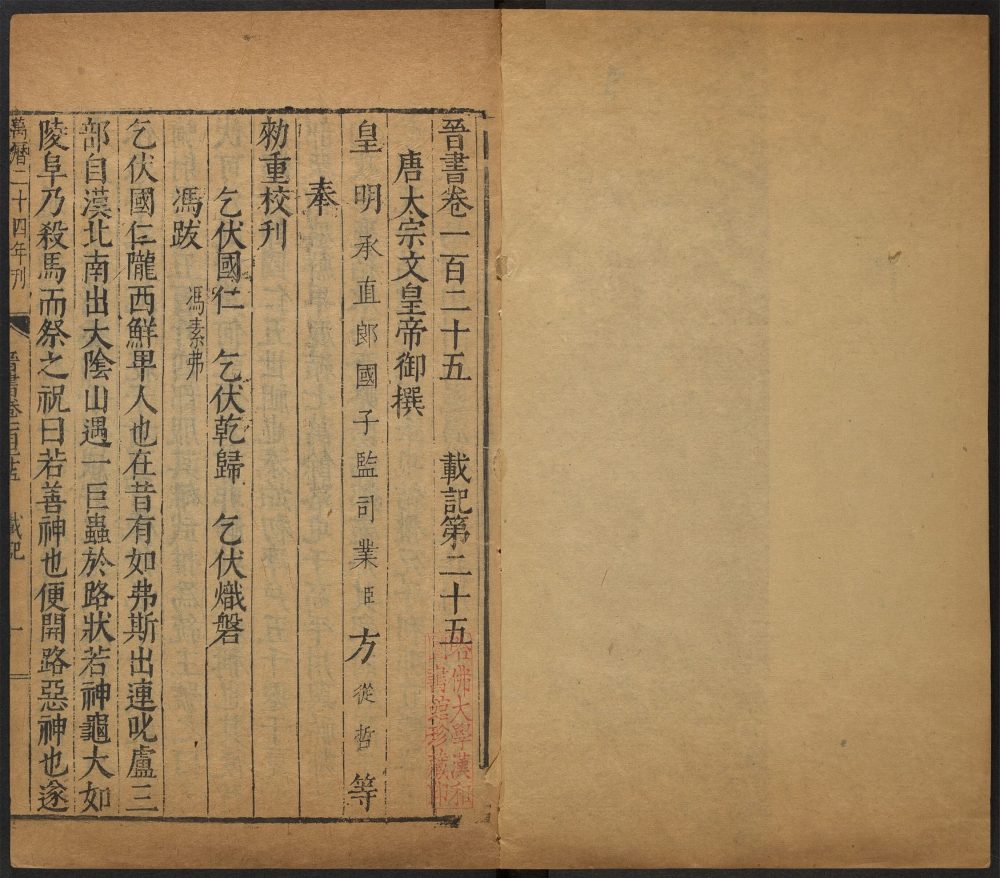 晉書卷一百二十五 載記第二十五
唐太宗文皇帝御撰
皇明承直郎國子監司業臣方從哲等
奉
勑重校刊
乞伏國仁 乞伏乾歸 乞伏熾磐
馮跋 馮素弗
乞伏國仁隴西鮮卑人也在昔有如弗斯出連叱盧三
部自漠北南出大陰山遇一巨蟲於路狀若神龜大如
陵阜乃殺馬而祭之祝曰若善神也便開路惡神也遂
萬曆二十四年刊
晉書卷一百二十五 載記 一
哈佛大學漢和
圖書館珍藏印